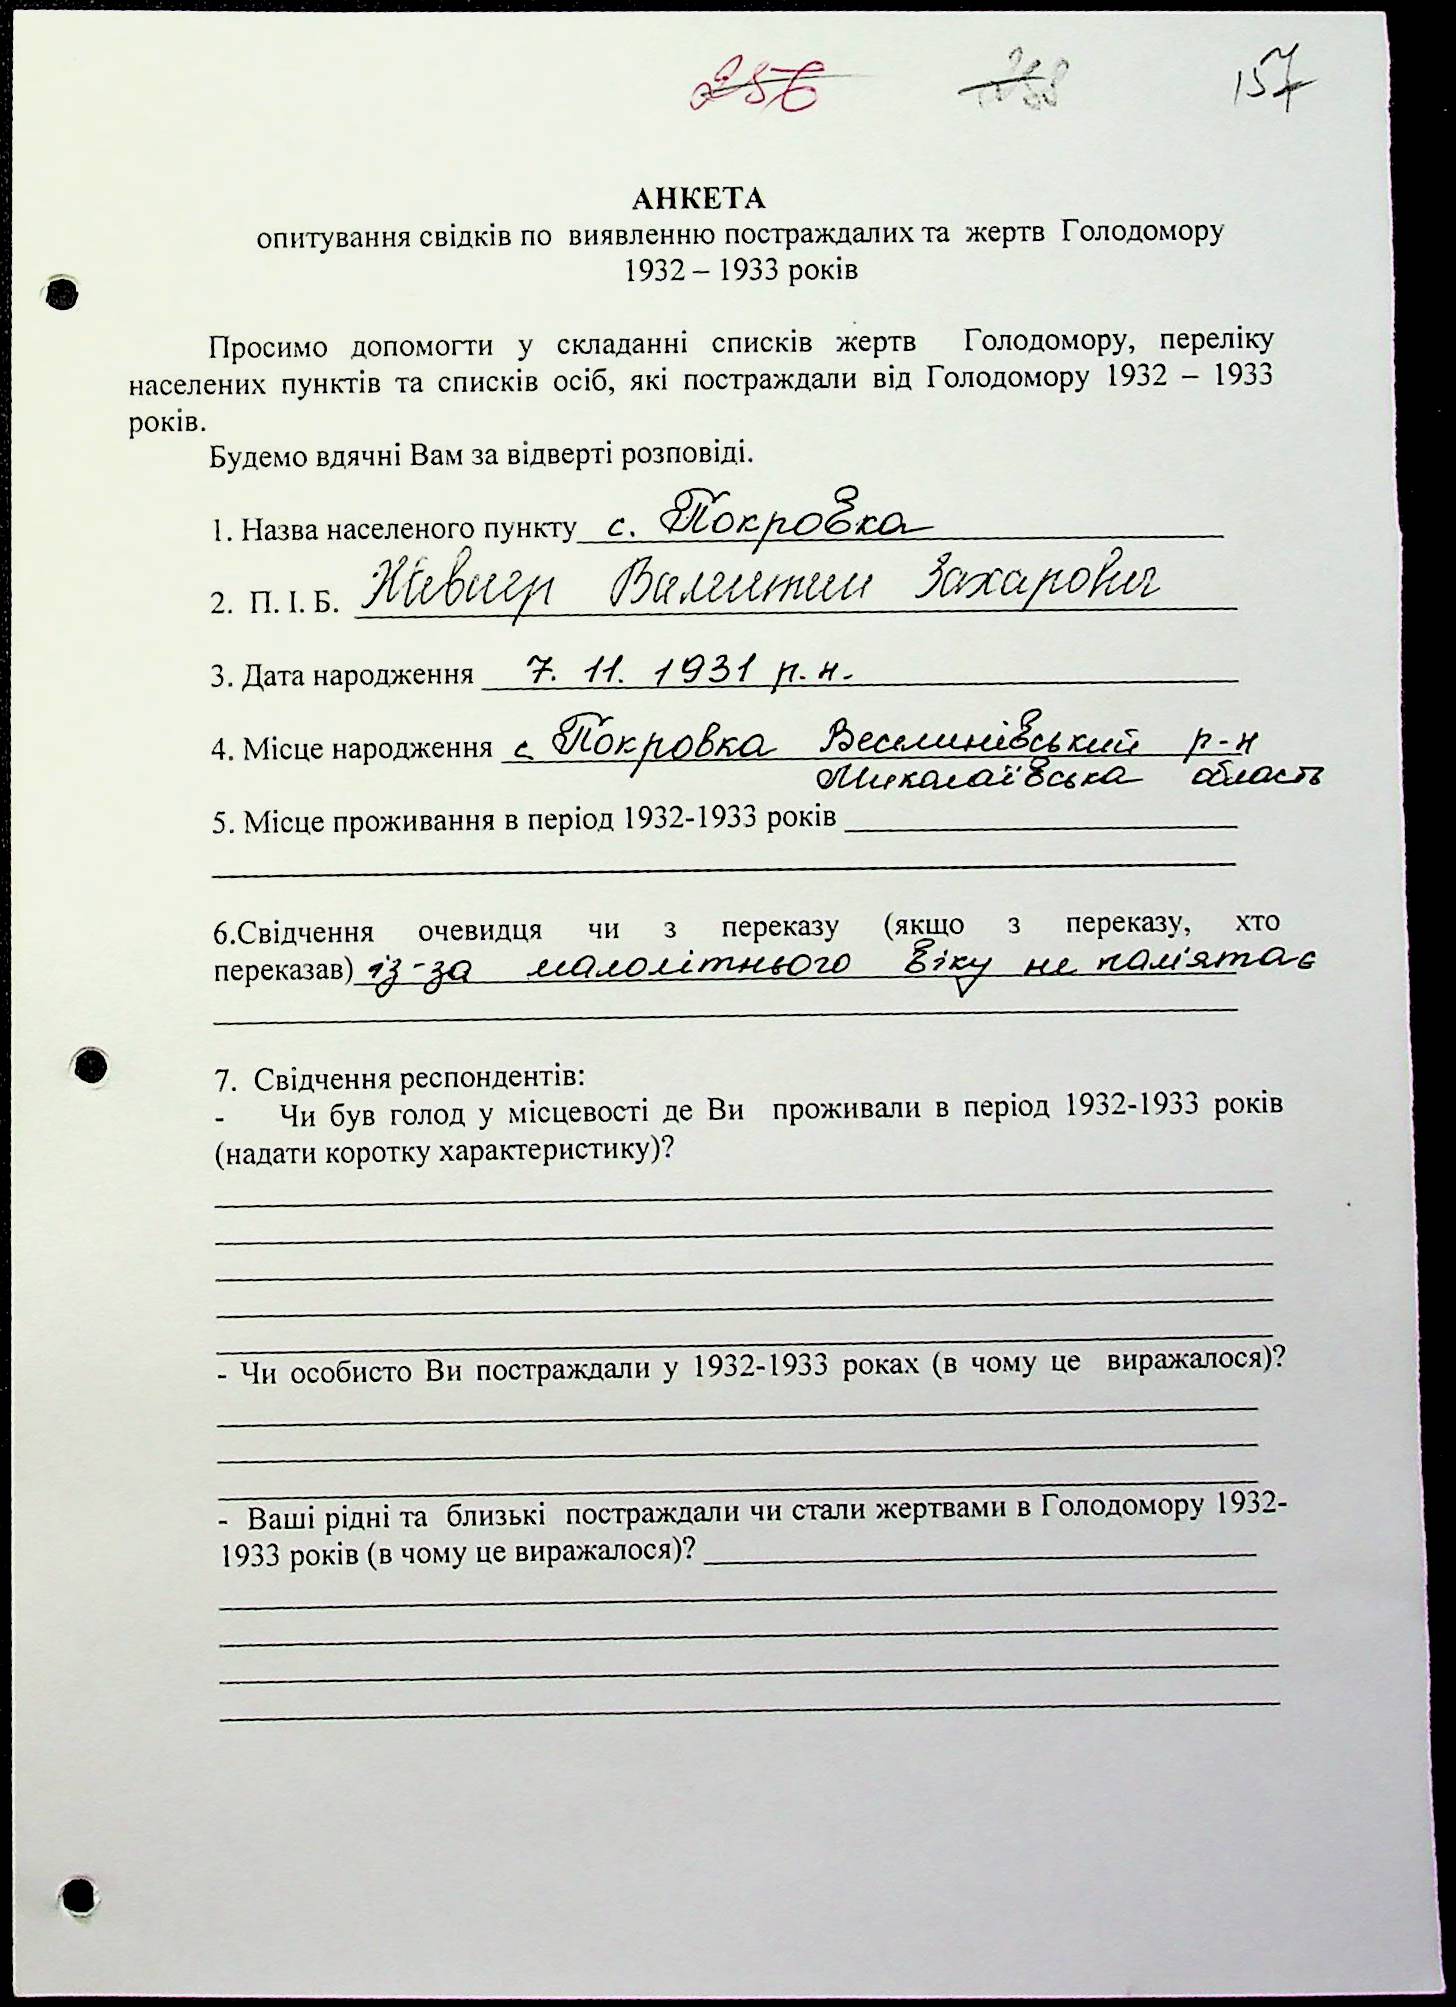 256 157
АНКЕТА
опитування свідків по виявленню постраждалих та жертв Голодомору
1932 – 1933 років
Просимо допомогти у складанні списків жертв Голодомору, переліку
населених пунктів та списків осіб, які постраждали від Голодомору 1932 – 1933
років.
Будемо вдячні Вам за відверті розповіді.
1. Назва населеного пункту с. Покровка
2. П. І. Б. Валентин Захарович
3. Дата народження 7. 11. 1931 р. н.
4. Місце народження с. Покровка Веселинівський р-н
Миколаївська область
5. Місце проживання в період 1932-1933 років
6.Свідчення очевидця чи з переказу (якщо з переказу, хто
переказав) із-за малолітнього віку не пам'ятає
7. Свідчення респондентів:
- Чи був голод у місцевості де Ви проживали в період 1932-1933 років
(надати коротку характеристику)?
- Чи особисто Ви постраждали у 1932-1933 роках (в чому це виражалося)?
- Ваші рідні та близькі постраждали чи стали жертвами в Голодомору 1932-
1933 років (в чому це виражалося)?